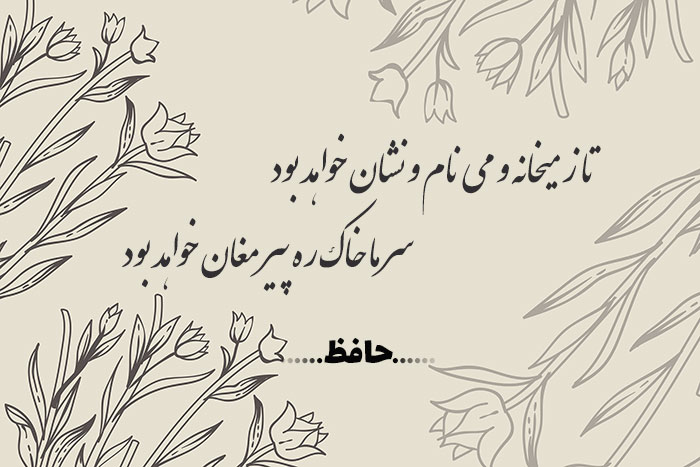 تا ز میخانه و می نام و نشان خواهد بود
سر ما خاک ره پیر مغان خواهد بود
......حافظ......